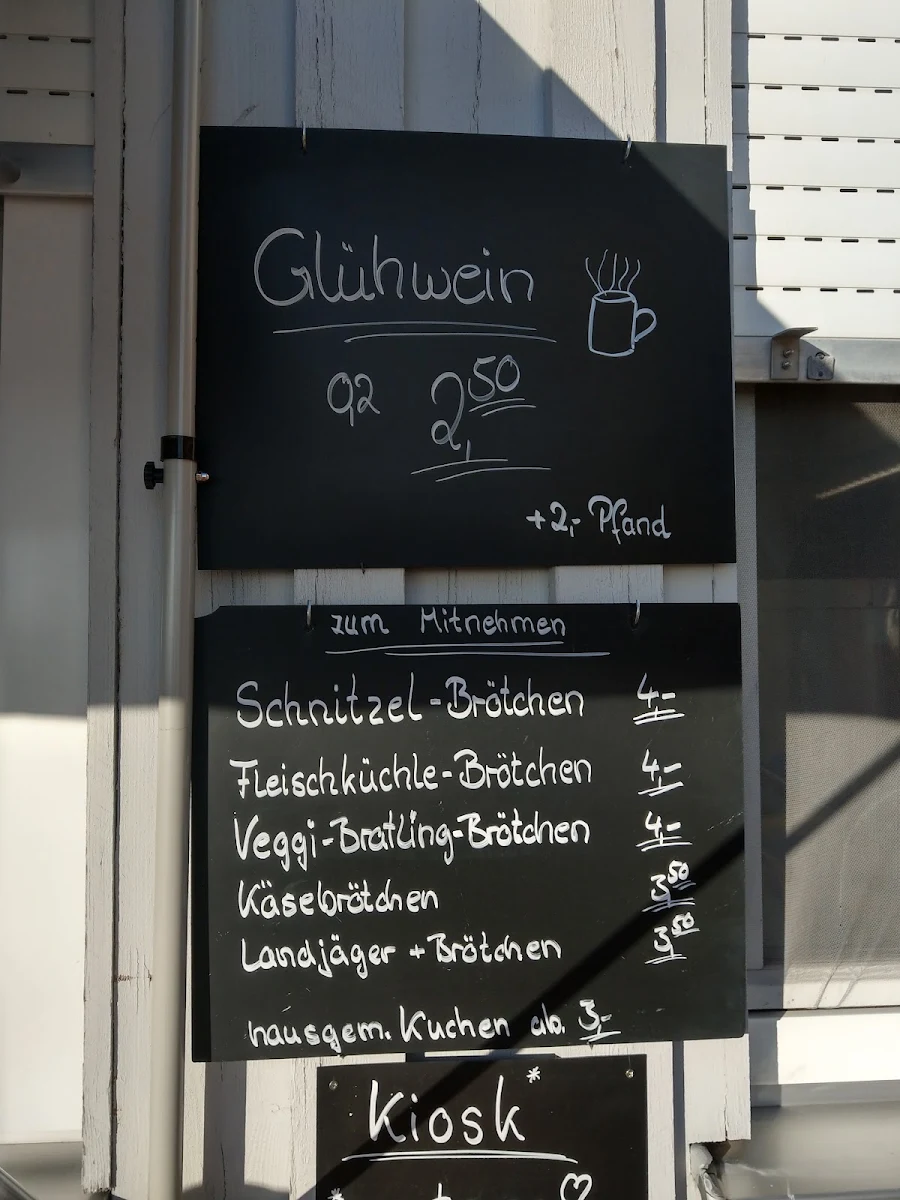 Glühwein
0,2 2,50
+2,- Pfand
zum Mitnehmen
Schnitzel-Brötchen 4,-
Fleischküchle-Brötchen 4,-
Veggi-Bratling-Brötchen 4,-
Käsebrötchen 3,50
Landjäger + Brötchen 3,50
hausgem. Kuchen ab. 3,-
Kiosk*